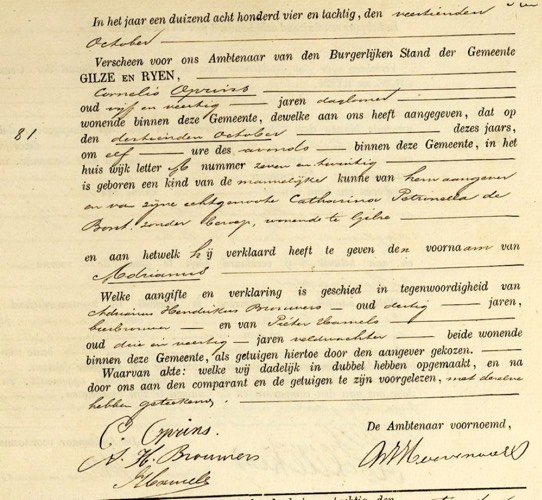 In het jaar een duizend acht honderd vier en tachtig, den veertienden
October
Verscheen voor ons Ambtenaar van den Burgerlijken Stand der Gemeente
GILZE EN RYEN,
Cornelis Oprins
oud vijf en veertig jaren daglooner
wonende binnen deze Gemeente, dewelke aan ons heeft aangegeven, dat op
81
den dertienden October dezes jaars,
om elf ure des avonds binnen deze Gemeente, in het
huis wijk letter A nummer zeven en twintig
is geboren een kind van de mannelijke kunne van hem aangever
en van zijne echtgenoote Catharina Petronella de
Bont, zonder beroep, wonende te Gilze
en aan hetwelk hij verklaard heeft te geven den voornaam van
Adrianus
Welke aangifte en verklaring is geschied in tegenwoordigheid van
Adrianus Hendrikus Brouwers oud dertig jaren,
bierbrouwer en van Pieter Hamels
oud drie en veertig jaren veldwachter beide wonende
binnen deze Gemeente, als getuigen hiertoe door den aangever gekozen.
Waarvan akte: welke wij dadelijk in dubbel hebben opgemaakt, en na
door ons aan den comparant en de getuigen te zijn voorgelezen, met dezelve
hebben geteekend.
C. Oprins.
De Ambtenaar voornoemd,
A. H. Brouwers
PHamels